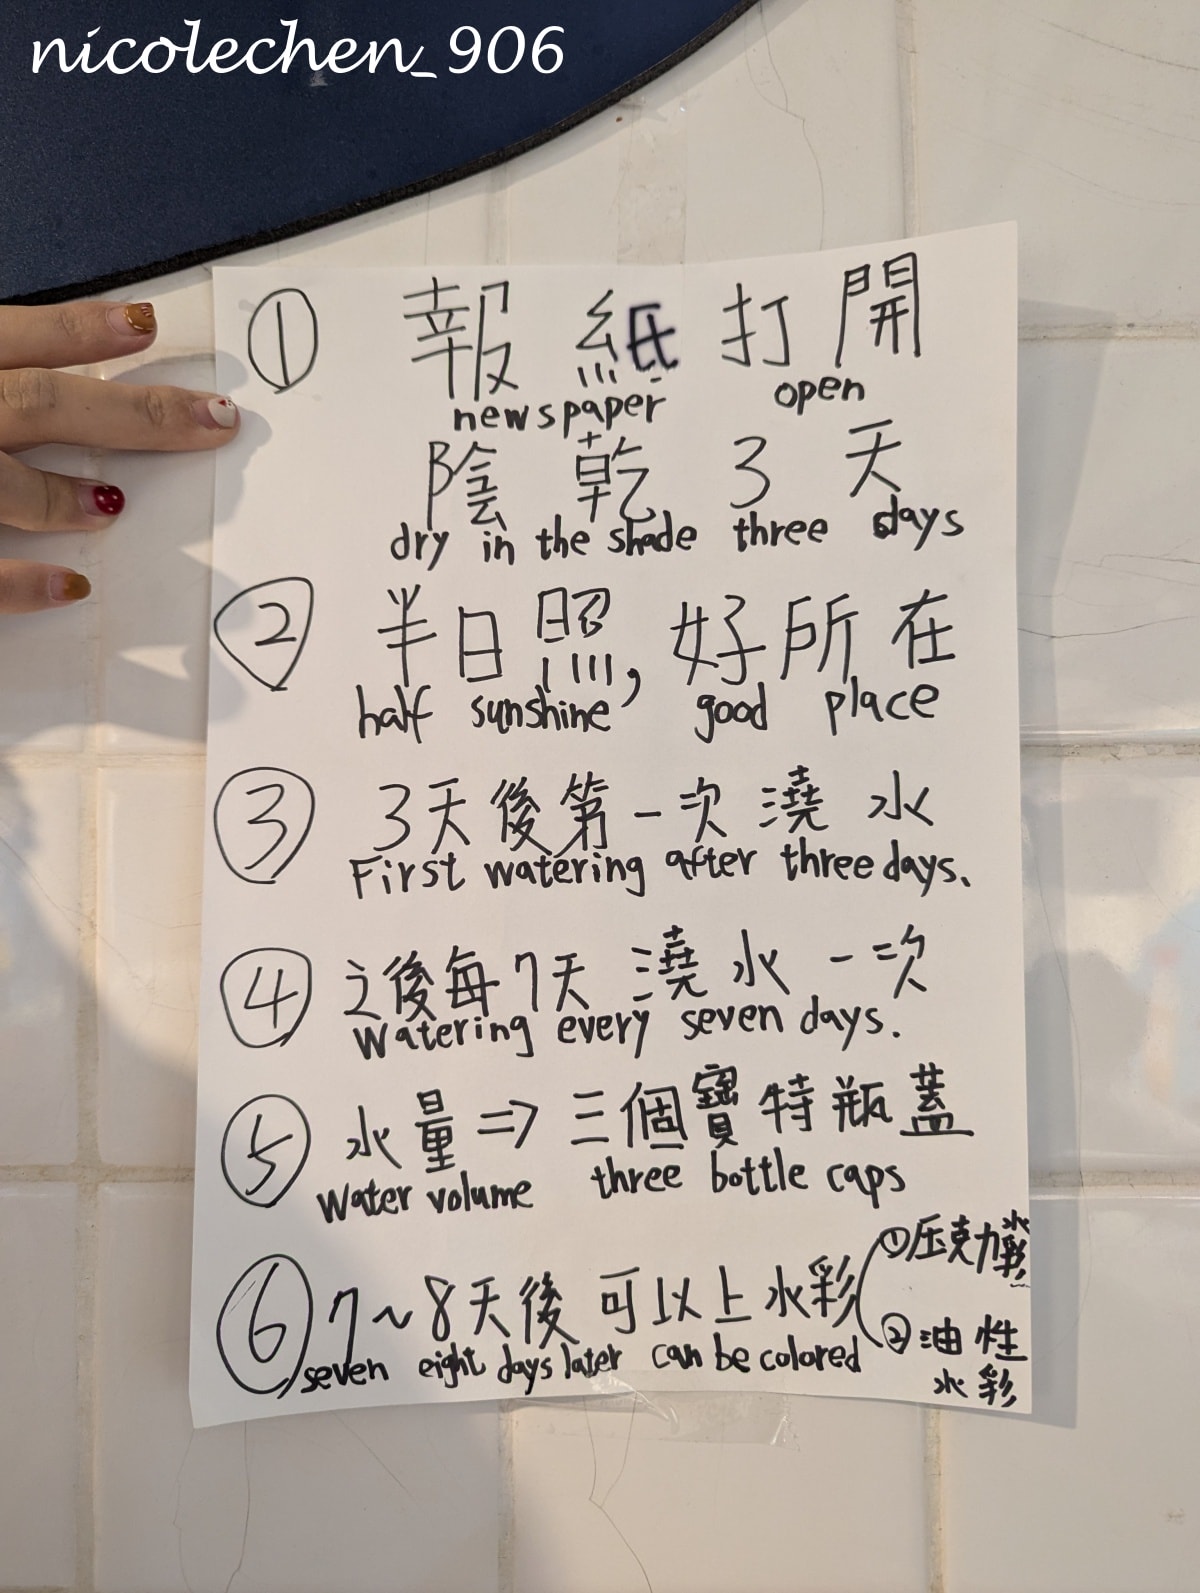 nicolechen_906
① 報紙打開
newspaper open
陰乾3天
dry in the shade three days
② 半日照，好所在
half sunshine, good place
③ 3天後第一次澆水
First watering after three days.
④ 之後每7天澆水一次
Watering every seven days.
⑤ 水量⇒三個寶特瓶蓋
Water volume three bottle caps
⑥ 7~8天後可以上水彩
seven eight days later can be colored
①压克力水彩
②油性水彩